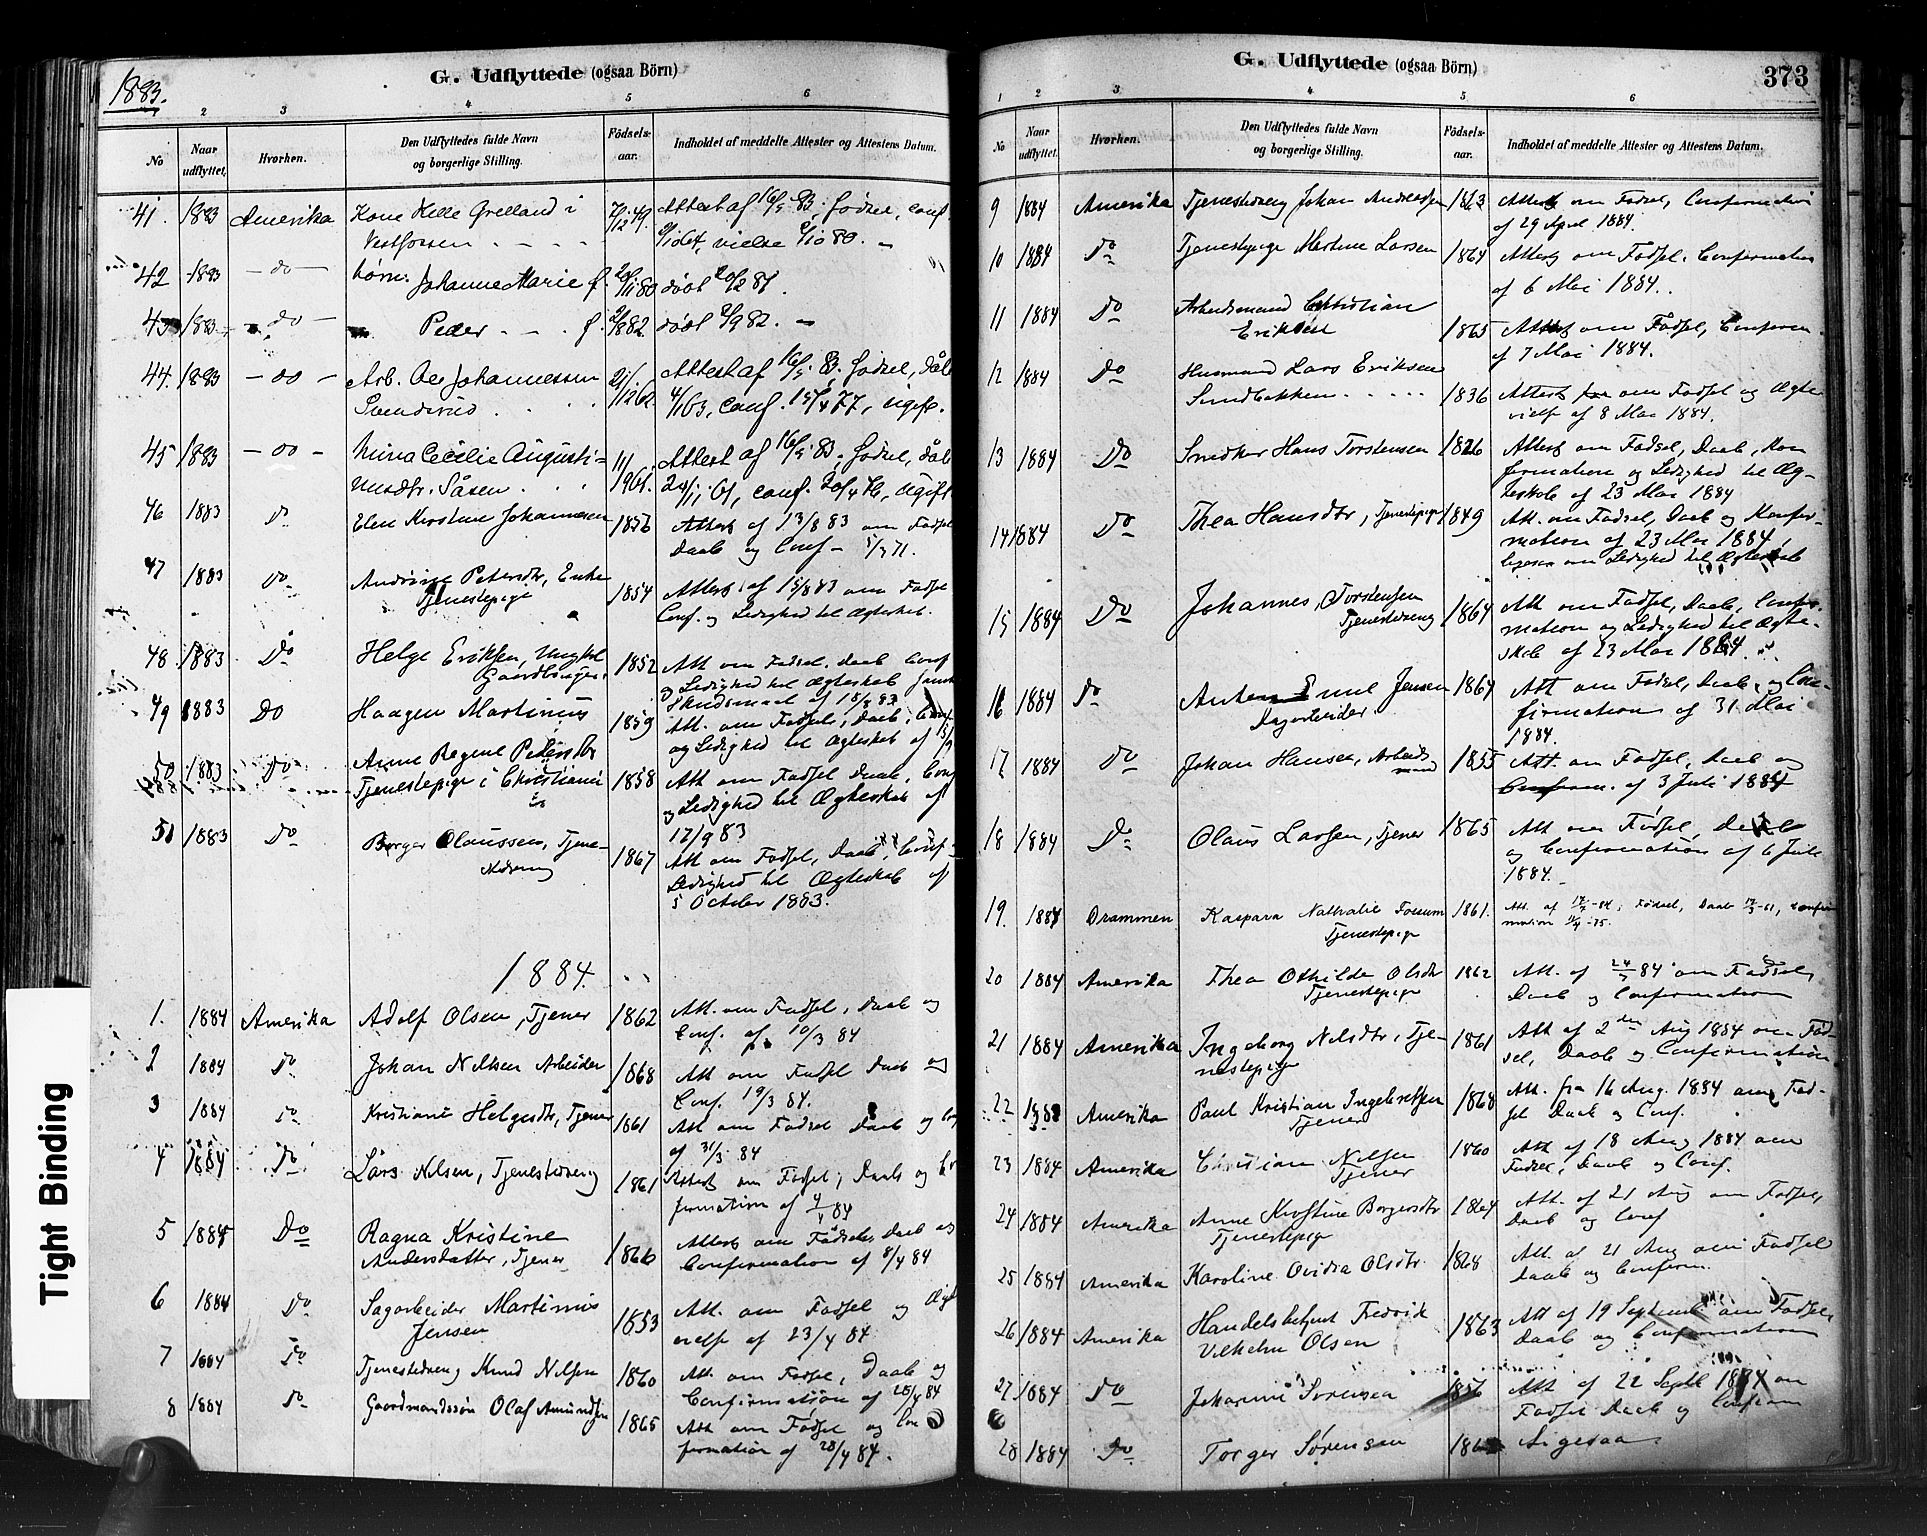 1883.
G. Udflyttede (ogsaa Börn)
2 3 4 5 6
No
Naar udflyttet.
Hvorhen.
Den Udflyttedes fulde Navn og borgerlige Stilling.
Födselsaar.
Indholdet af meddelte Attester og Attestens Datum.
41. 1883 Amerika Kone Helle Grelland i 7/12 49. Attest af 16/5 83, födsel, conf
Vestfossen - - - - vielse 80. -
42 1883 - do - börn: Johanne Marie f. 20/11 80 døbt 20/2 81.
43 1883 - do - Peder - - . f. 2/8 82 døbt 2/9 82. -
44. 1883 - do - Arb. Ole Johannessen 21/12 62. Attest af 16/5 83. födsel, dåb
Svendsrud . . . 4/1 63, conf. 15/4 77, ugift.
45 1883 - do - Nina Cecilie Augusti- Attest af 16/5 83. födsel, dåb
nusdtr. Såsen . . . conf. ugift
46 1883 Do Elen Kirstine Johannesen 1856 Attest af 13/8 83 om Födsel
Daab og Conf -
47 1883 Do Andrine Petersdtr, Enke 1854 Attest af 15/8 83 om Fødsel
Tjenestepige Conf. og Ledighed til Ægteskab.
48 1883 Do Helge Eriksen, Ungkl 1852 Att om Fødsel. Daab Conf
Gaardbruger. og Ledighed til Ægteskab
Skudsmaal af 18/8 83
49 1883 Do Haagen Martinius 1859 Att. om Fødsel, Daab, Conf
og Ledighed til Ægteskab af
50 1883 Do Anne Regine Pedersdtr
Tjenestepige i Christiania 1858 Att om Fødsel Daab, Conf
og Ledighed til Ægteskab af
12/9 83
51 1883 Do Borger Olaussen, Tjene- 1867 Att om Fødsel, Daab, Conf
stedreng Ledighed til Ægteskab af
5 October 1883.
1884.
1. 1884 Amerika Adolf Olsen, Tjener 1862 Att. om Fødsel, Daab og
Conf. af 10/3 84
2 1884 Do Johan Nilsen Arbeider 1868 Att om Fødsel Daab og
Conf. 19/3 84.
3 1884 Do Kristiane Helgesdtr, Tjener 1861 Att om Fødsel Daab og
af 31/3 84
4 1884 Do Lårs Nilsen, Tjenestedreng 1861 Attest om Fødsel, Daab og
firmation af 4/4 84
5 1884 Do Ragna Kristine
Andersdatter, Tjener 1866 Attest om Fødsel, Daab og
Confirmation af 8/4 84
6 1884 Do Sagarbeider Martinius 1853 Att. om Fødsel og Ægte
Jensen vielse af 23/4 84
7 1884 Do Tjenestedreng Knud Nilsen 1860 Att. om Fødsel, Daab og
Confirmation af 28/4 84
8 1884 Do Gaardmandssøn Olaf Amundsen 1865 Att om Fødsel og Con
firmation af 28/4 84.
G. Udflyttede (ogsaa Börn)
373
1 2 3 4 5 6
No
Naar udflyttet.
Hvorhen.
Den Udflyttedes fulde Navn og borgerlige Stilling.
Födselsaar.
Indholdet af meddelte Attester og Attestens Datum.
9 1884 Amerika Tjenestedreng Johan Andreassen 1863 Attest om Fødsel, Confirmation
af 29 April 1884.
10 1884 Do Tjenestepige Martine Larsen 1864 Attest om Fødsel. Confirmation
af 6 Mai 1884.
11 1884 Do Arbeidsmand Christian
Eriksen 1865 Attest om Fødsel, Confirm.
af 7 Mai 1884.
12 1884 Do Husmand Lars Eriksen
Sundbakken . . . . . 1836 Attest om Fødsel og Ægte
vielse af 8 Mai 1884.
13 1884 Do Snedker Hans Torstensen 1826 Attest om Fødsel, Daab, Kon
firmation og Ledighed til Æg-
teskab af 23 Mai 1884
14 1884 Do Thea Hansdtr, Tjenestepige 1849 Att. om Fødsel, Daab og Konfir-
mation af 23 Mai 1884,
ligesaa om Ledighed til Ægteskab
15 1884 Do Johannes Torstensen 1864 Att om Fødsel, Daab, Confir-
Tjenestedreng mation og Ledighed til Ægte-
skab af 23 Mai 1884.
16 1884 Do Anton Emil Jensen 1864 Att om Fødsel, Daab, og Con-
Dagarbeider firmation af 31 Mai
1884.
17 1884 Do Johan Hansen, Arbeids 1855 Att. om Fødsel, Daab og
mand Confirm. af 3 Juli 1884
18 1884 Do Olaus Larsen, Tjener 1865 Att om Fødsel, Daab
og Confirmation af 6 Juli
1884.
19. 1884 Drammen Kaspara Nathalie Fossum 1861. Att. af 84, Födsel, Daab 61, Confir
Tjenestepige mation 75.
20 1884 Amerika Thea Othilde Olsdtr 1862 Att. af 24/7 84 om Fødsel,
Tjenestepige Daab og Confirmation
21 1884 Amerika Ingeborg Nilsdtr, Tje- 1861 Att af 2den Aug 1884 om Fød-
nestepige sel, Daab og Confirmation
22 Amerika Paul Kristian Ingebretsen 1868 Att. fra 16 Aug. 1884 om Fød-
Tjener sel Daab og Conf.
23 1884 Amerika Christian Nilsen 1860 Att af 18 Aug 1884 om
Tjener Fødsel, Daab og Conf.
24 1884 Amerika Anne Kristine Borgersdtr 1864 Att. af 21 Aug om Fødsel,
Tjenestepige Daab og Conf
25 1884 Amerika Karoline Ovidia Olsdtr. 1868 Att. af 21 Aug om Fødsel
Daab og Confirm.
26 1884 Amerika Handelsbetjent Fredrik 1863 Att af 19 Septemb om Fødsel,
Vilhelm Olsen Daab og Confirmation
27 1884 Do Johanne Sørensen 1856 Att af 22 Sept 1884 om
Fødsel Daab og Confirm
28 1884 Do Torger Sørensen Ligesaa
Tight Binding